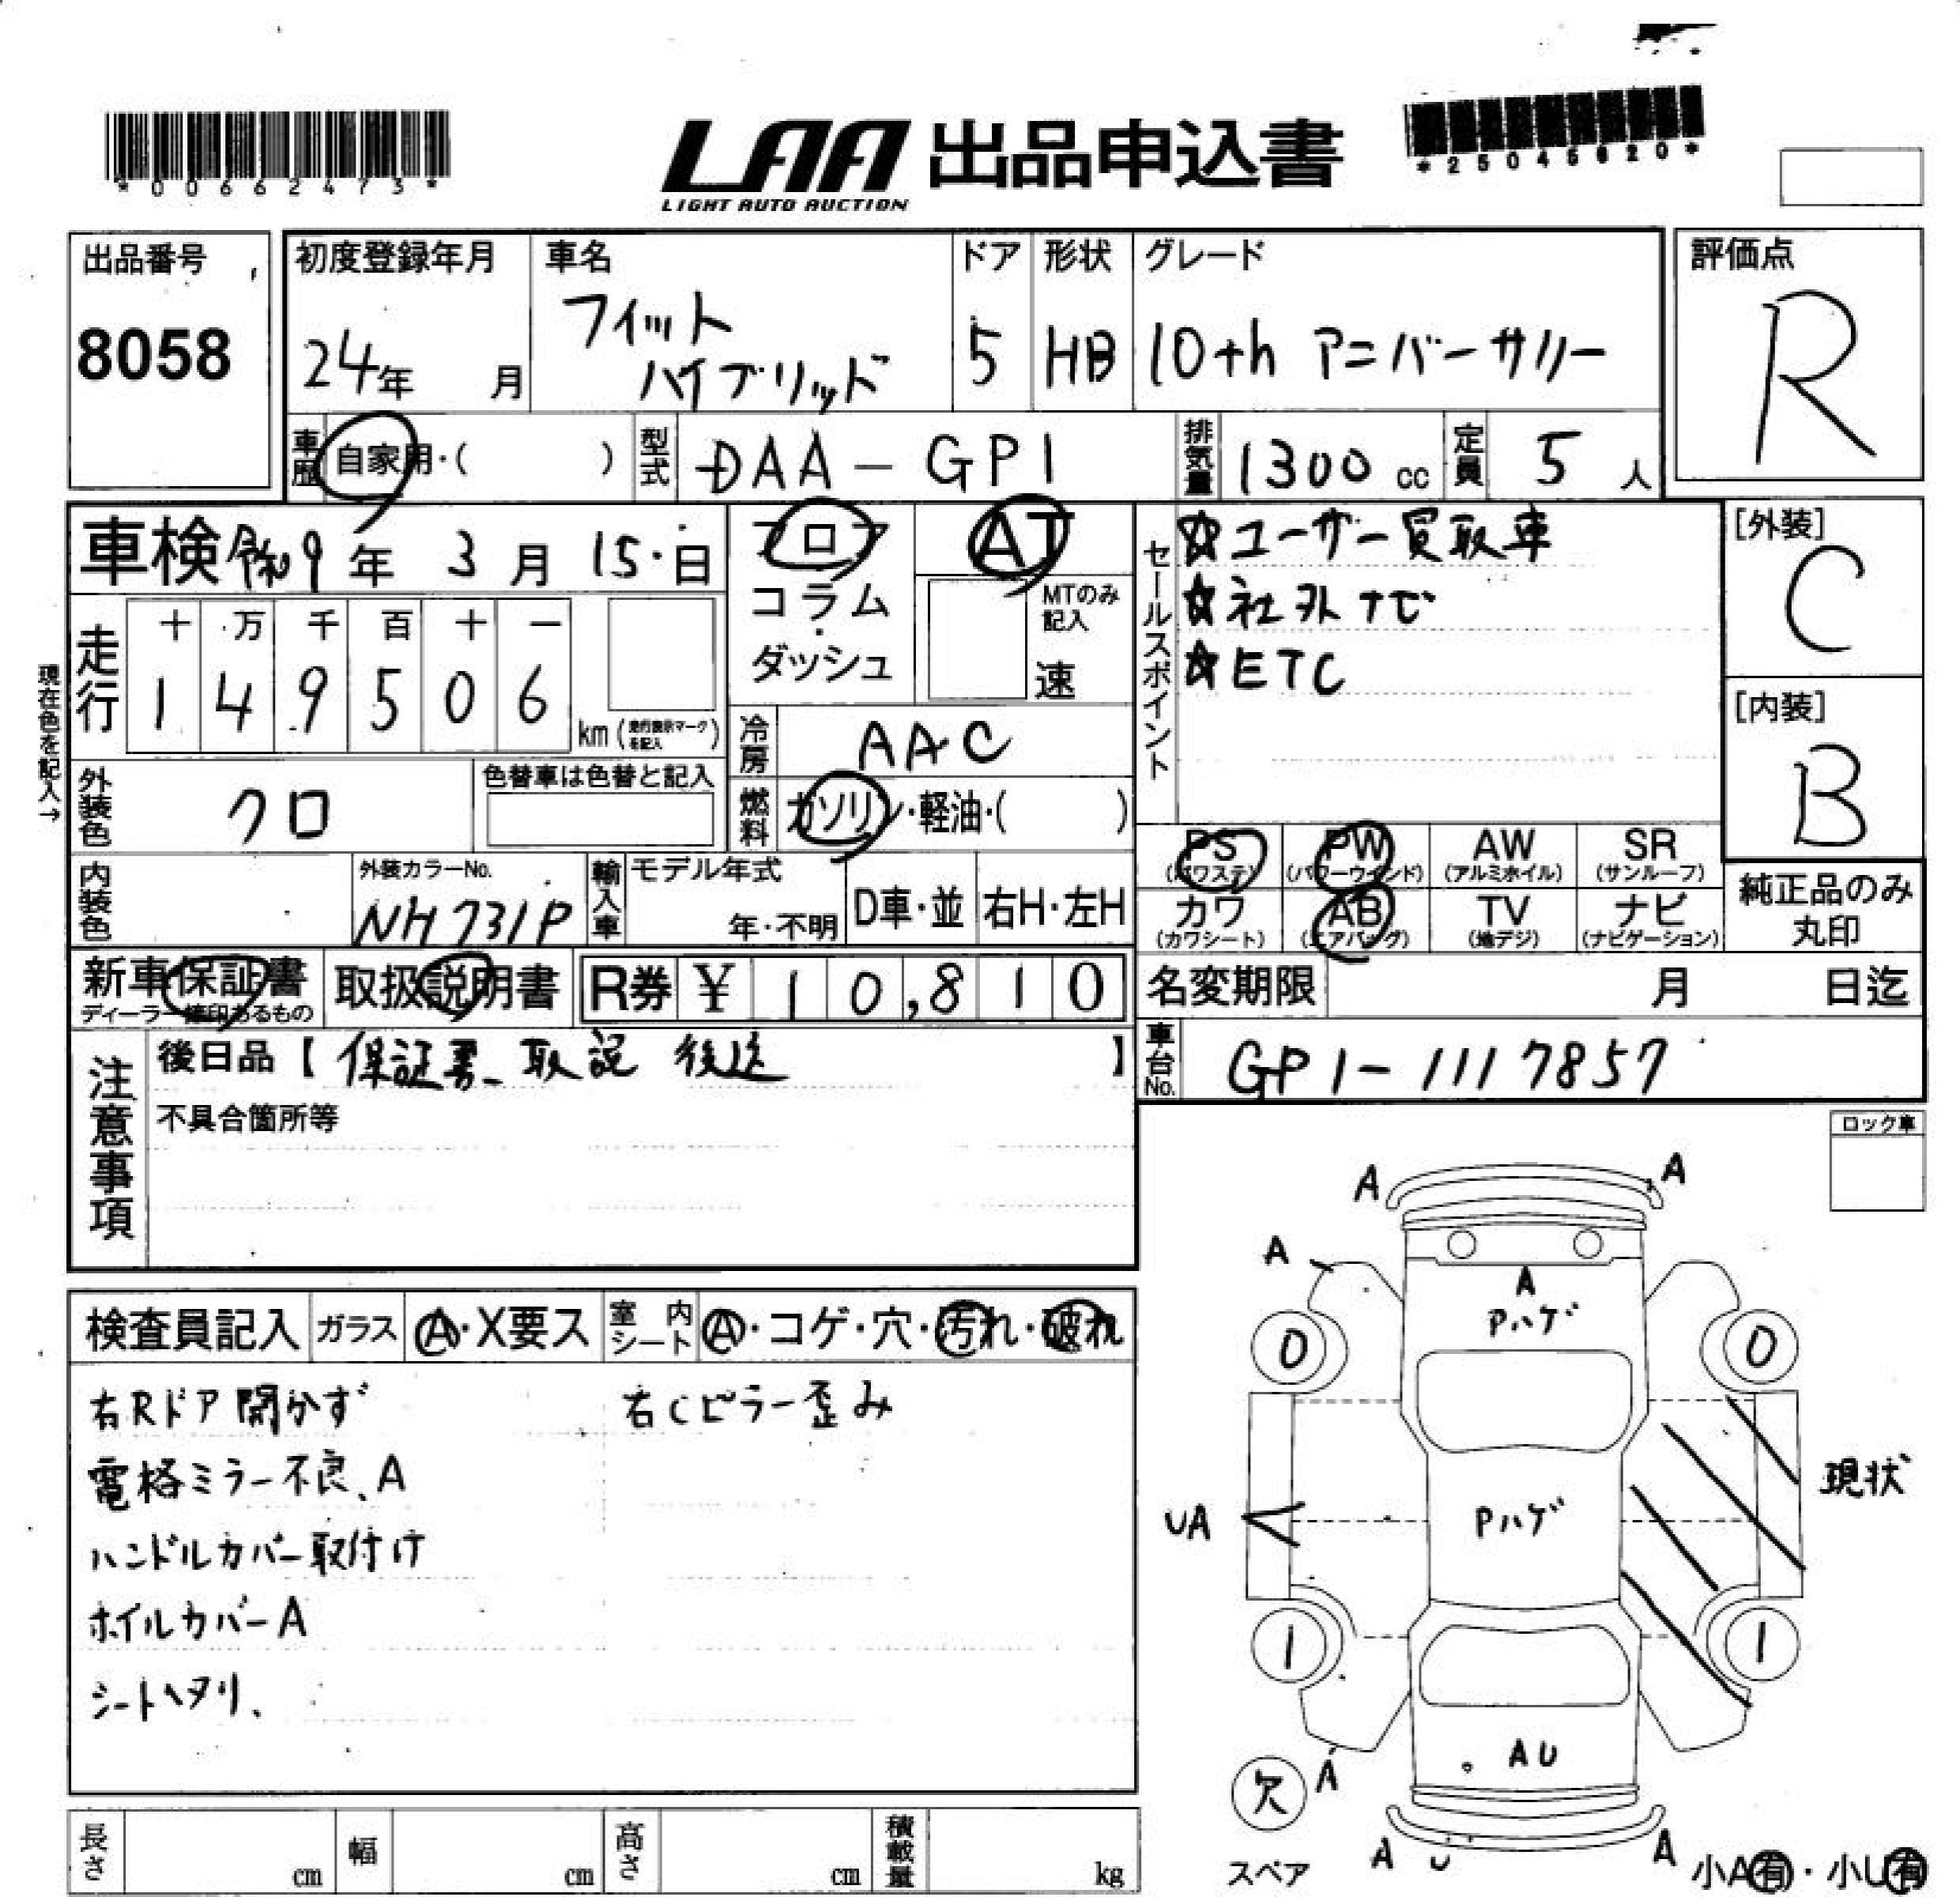 *00662473*
LAA 出品申込書
LIGHT AUTO AUCTION
*25045620*
出品番号
8058
初度登録年月
24年 月
車名
フィット
ハイブリッド
ドア
5
形状
HB
グレード
10th アニバーサリー
評価点
R
車歴
自家用・( )
型式
DAA-GP1
排気量
1300 cc
定員
5 人
車検 令和9年 3月 15日
フロア
コラム
・
ダッシュ
AT
MTのみ
記入
速
セールスポイント
☆ユーザー買取車
☆社外ナビ
☆ETC
[外装]
C
[内装]
B
現在色を記入→
走行
十 万 千 百 十 一
1 4 9 5 0 6
km(走行表示マークを記入)
冷房
AAC
外装色
クロ
色替車は色替と記入
燃料
ガソリン・軽油・( )
PS
(パワステ)
PW
(パワーウインド)
AW
(アルミホイル)
SR
(サンルーフ)
カワ
(カワシート)
AB
(エアバッグ)
TV
(地デジ)
ナビ
(ナビゲーション)
純正品のみ
丸印
内装色
外装カラーNo.
NH731P
輸入車
モデル年式
年・不明
D車・並
右H・左H
新車保証書
ディーラー捺印あるもの
取扱説明書
R券 ¥ 10,810
名変期限 月 日迄
車台No.
GP1-1117857
注意事項
後日品【 保証書、取説 後送 】
不具合箇所等
ロック車
検査員記入
ガラス
A・X要ス
室内シート
A・コゲ・穴・汚れ・破れ
右Rドア開かず
右Cピラー歪み
電格ミラー不良、A
ハンドルカバー取付け
ホイルカバーA
シートヘタリ、
A
A
A
A
Pハゲ
0
0
現状
UA
Pハゲ
1
1
AU
A
欠
スペア
A
U
A
小A有・小U有
長さ
cm
幅
cm
高さ
cm
積載量
kg